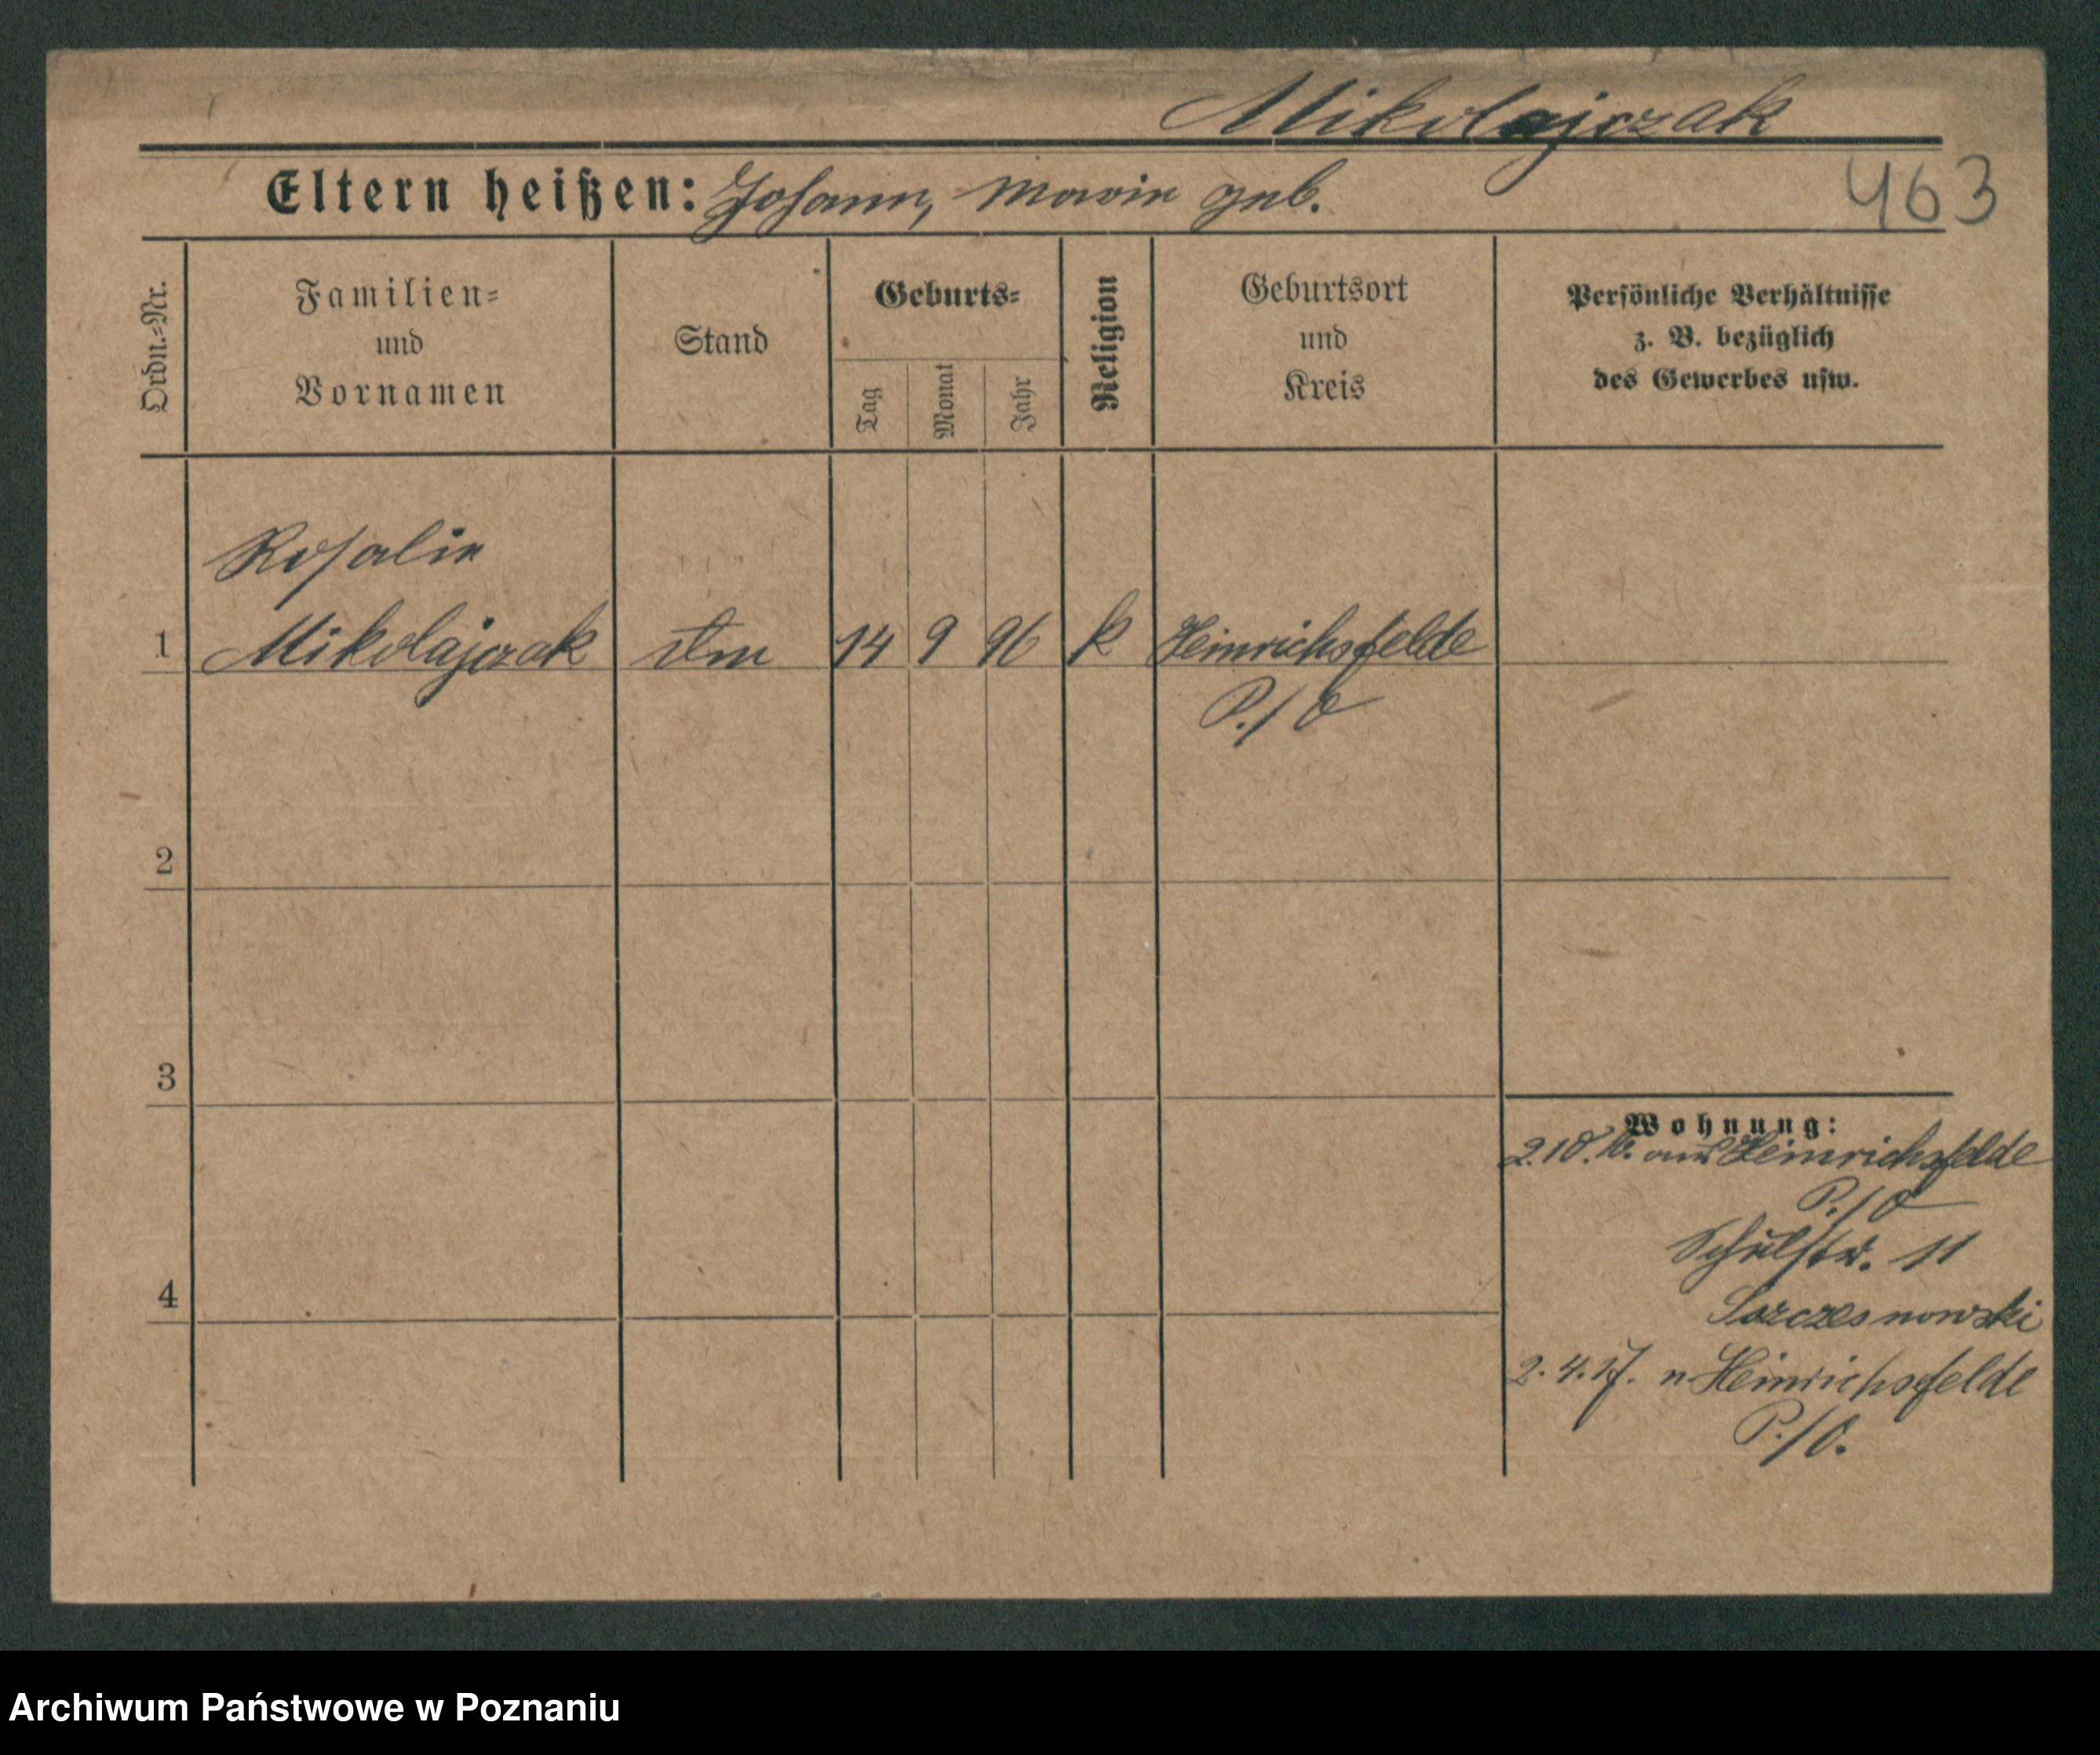 Mikolajczak
Eltern heißen: Johann, Marie geb.
463
Ordn.-Nr.
Familien-
und
Vornamen
Stand
Geburts-
Tag
Monat
Jahr
Religion
Geburtsort
und
Kreis
Persönliche Verhältnisse
z. B. bezüglich
des Gewerbes usw.
Rosalie
1 Mikolajczak 14 9 96 k Heinrichsfelde
P./O
2
3
4
Wohnung:
2.10. aus Heinrichsfelde
P./O
Schulstr. 11
2.4.17. n Heinrichsfelde
P./O.
Archiwum Państwowe w Poznaniu